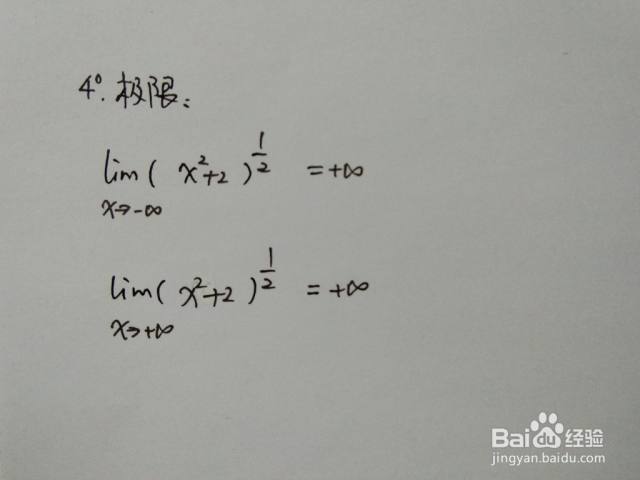 4°. 极限:
lim ( x²+2 )^{1/2} = +∞
x→-∞
lim ( x²+2 )^{1/2} = +∞
x→+∞
Baidu经验
jingyan.baidu.com